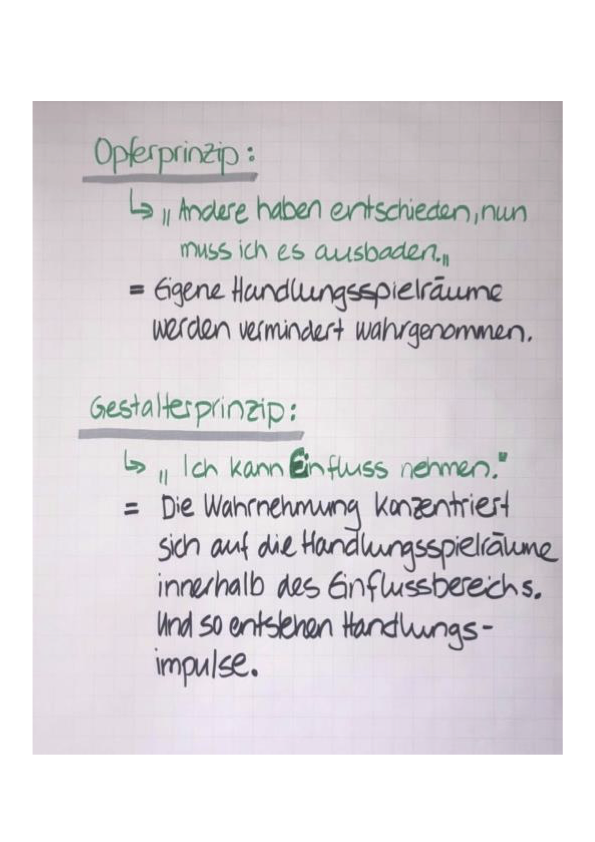 Opferprinzip:
↳ „Andere haben entschieden, nun
muss ich es ausbaden.„
= Eigene Handlungsspielräume
werden vermindert wahrgenommen.
Gestalterprinzip:
↳ „Ich kann Einfluss nehmen."
= Die Wahrnehmung konzentriert
sich auf die Handlungsspielräume
innerhalb des Einflussbereichs.
Und so entstehen Handlungs-
impulse.